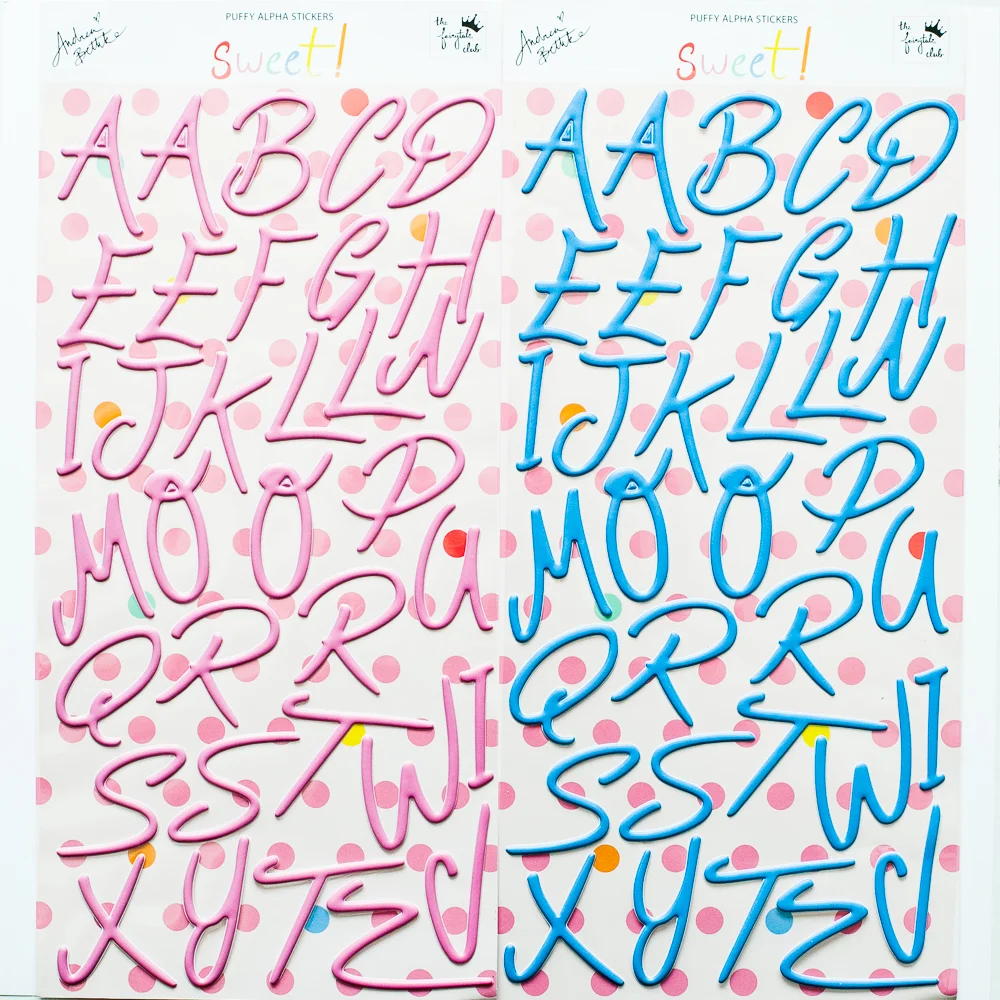 Andrea
PUFFY ALPHA STICKERS
sweet!
the
fairytale
club
A A B C D
E E F G H
I J K L L N
M O O P U
Q R R
S S T W I
X Y T Z V
Andrea
PUFFY ALPHA STICKERS
sweet!
the
fairytale
club
A A B C D
E E F G H
I J K L L N
M O O P U
Q R R
S S T W I
X Y T Z V